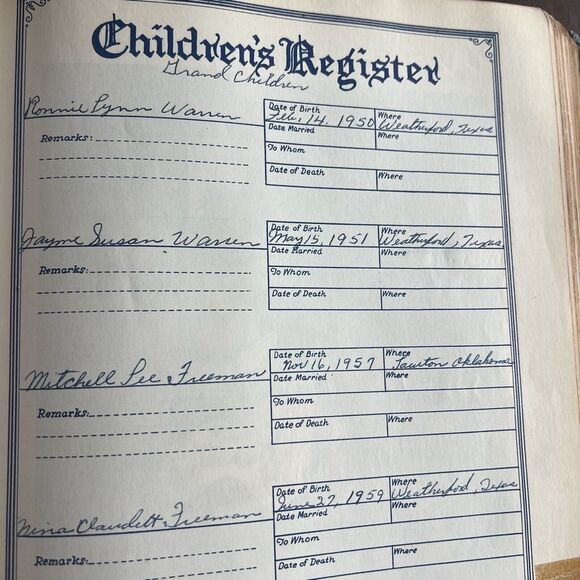 Children's Register
Grand Children
Ronnie Lynn Warren
Date of Birth Feb, 14, 1950 Where Weatherford, Texas
Remarks: Date Married Where
To Whom
Date of Death Where
Jayme Susan Warren
Date of Birth May 15, 1951 Where Weatherford, Texas
Date Married Where
Remarks: To Whom
Date of Death Where
Mitchell Lee Freeman
Date of Birth Nov 16, 1957 Where Lawton Oklahoma
Date Married Where
Remarks: To Whom
Date of Death Where
Nina Claudett Freeman
Date of Birth June 27, 1959 Where Weatherford, Texas
Date Married Where
To Whom
Remarks: Date of Death Where